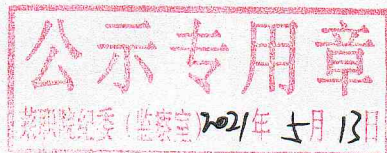 公示专用章
莱职院纪委（监察室）2021年5月13日